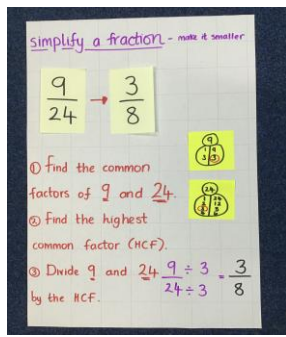 simplify a fraction - make it smaller
9/24 → 3/8
9
1 9
3 3
① Find the common
factors of 9 and 24.
24
② Find the highest
common factor (HCF).
③ Divide 9 and 24
by the HCF.
9 ÷ 3
24 ÷ 3
= 3/8